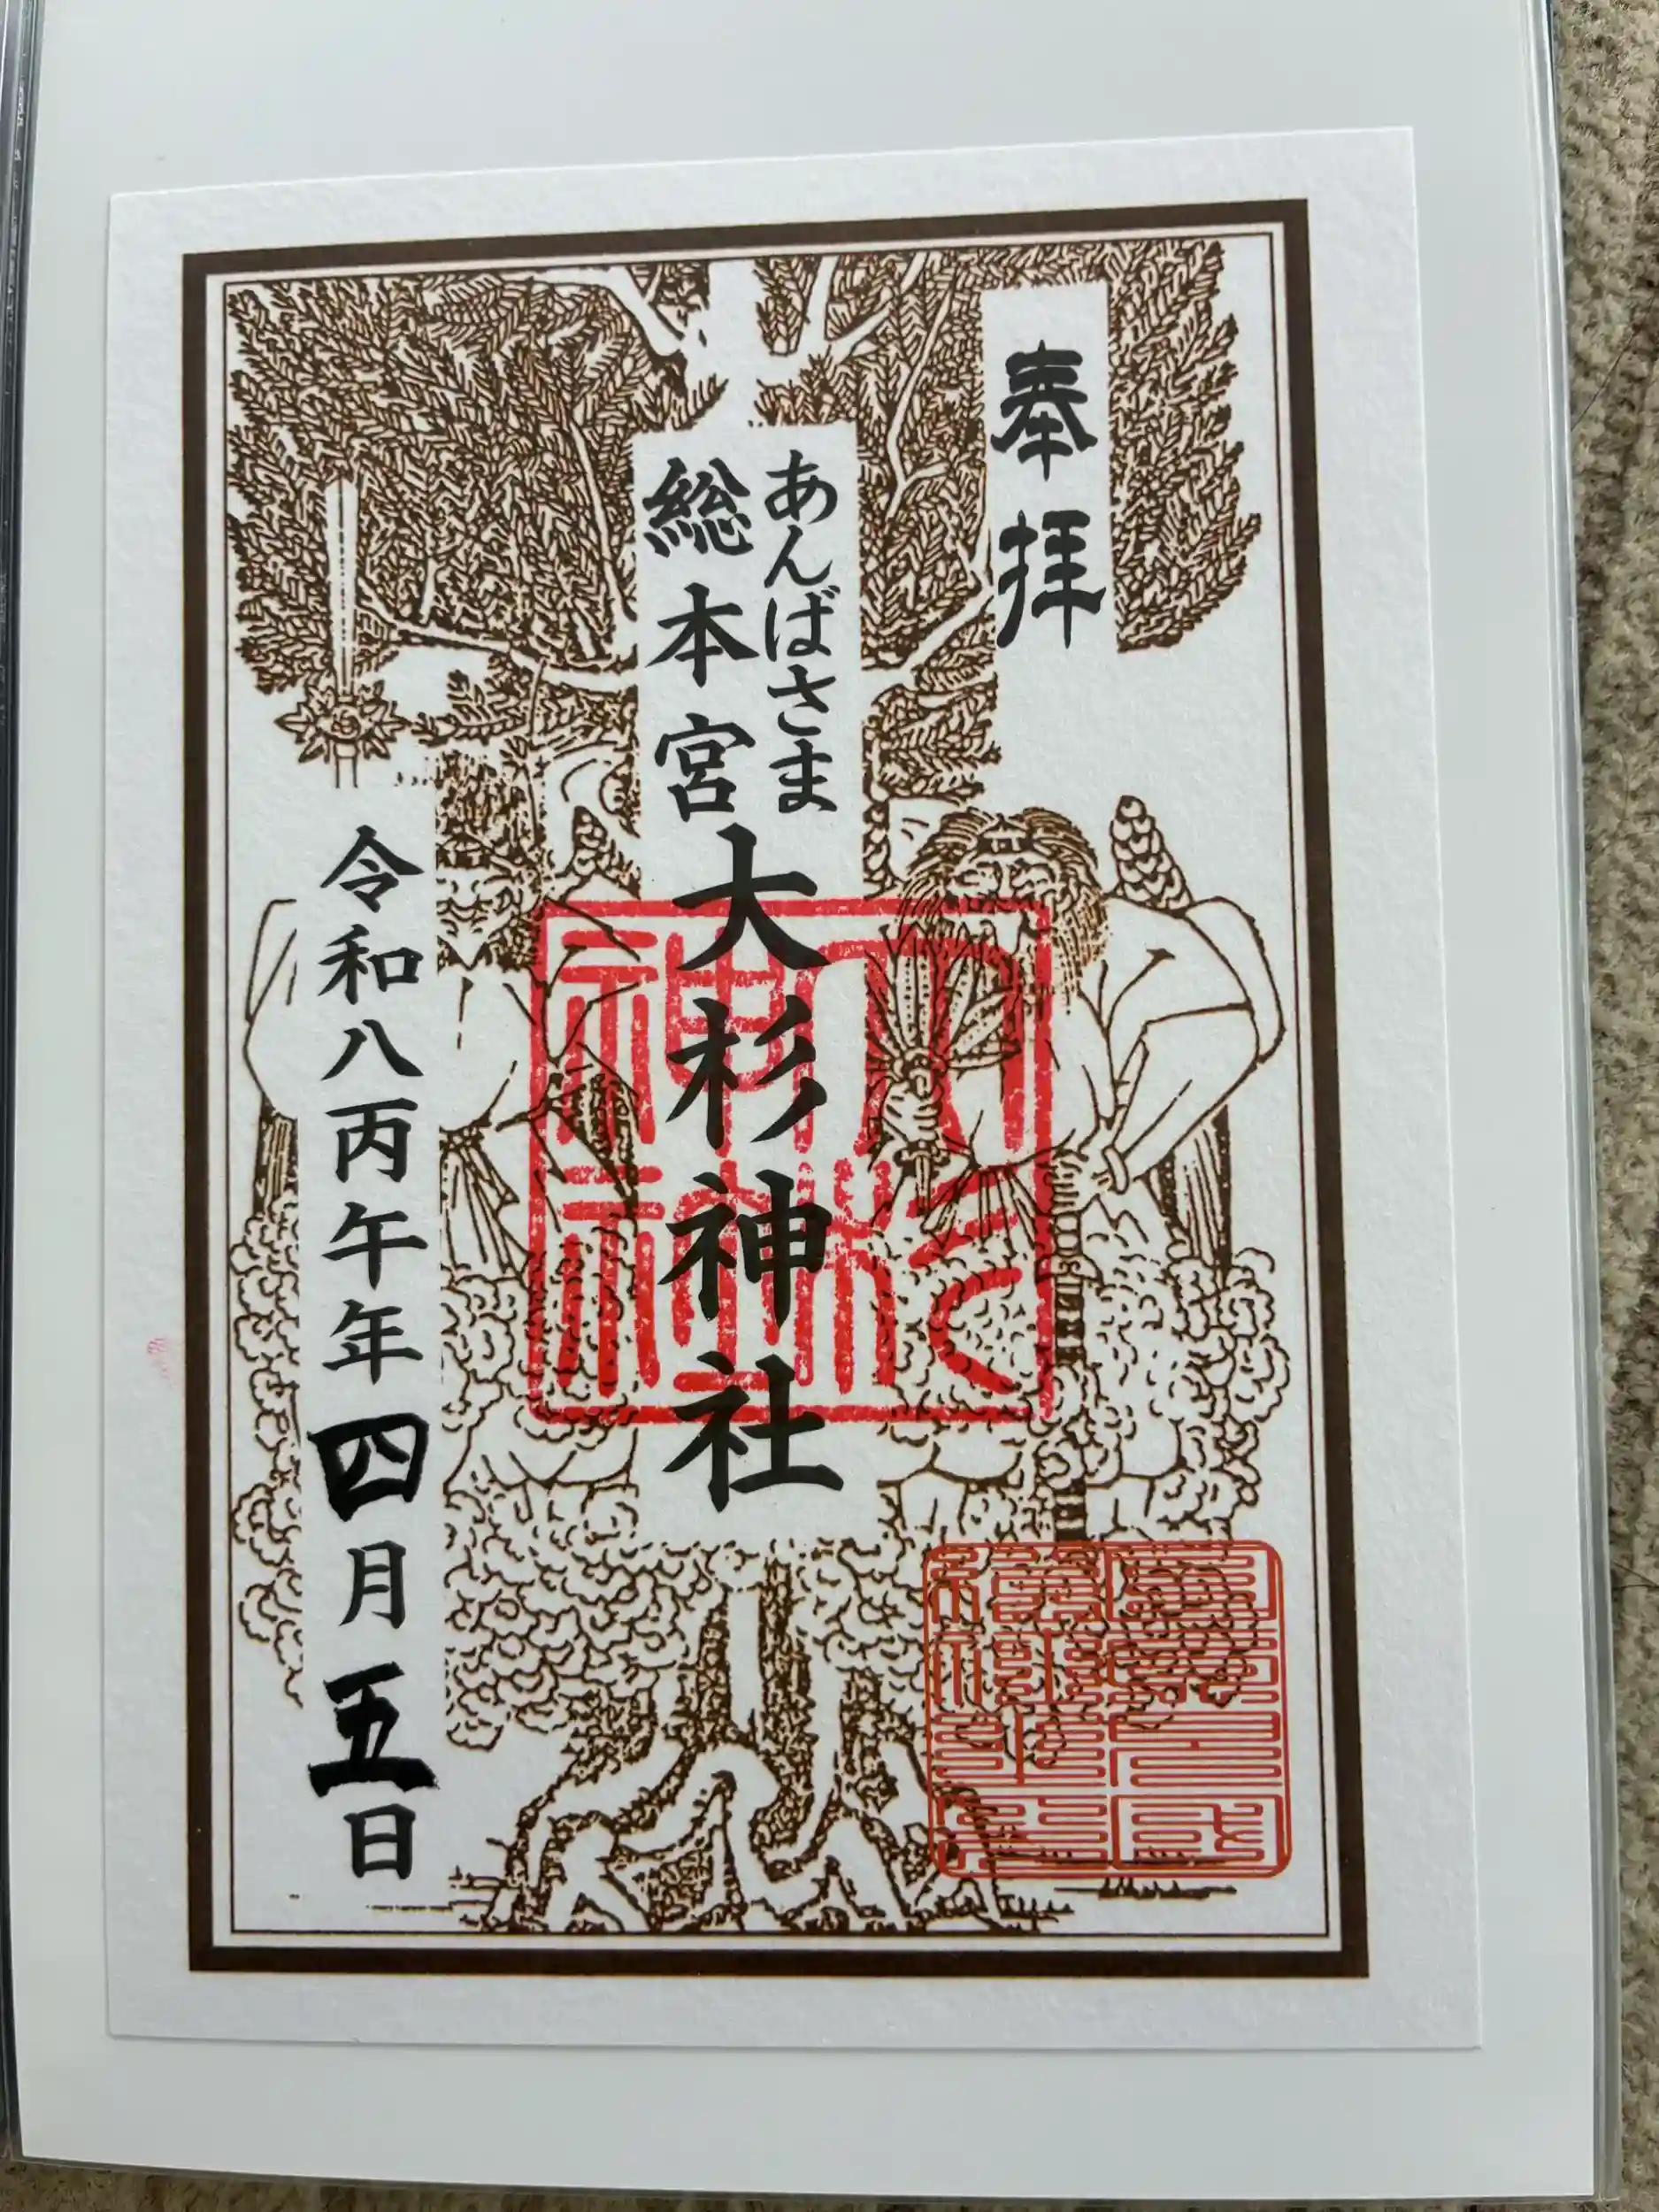 奉拝
あんばさま
総本宮
大杉神社
令和八丙午年四月五日
大杉
神社